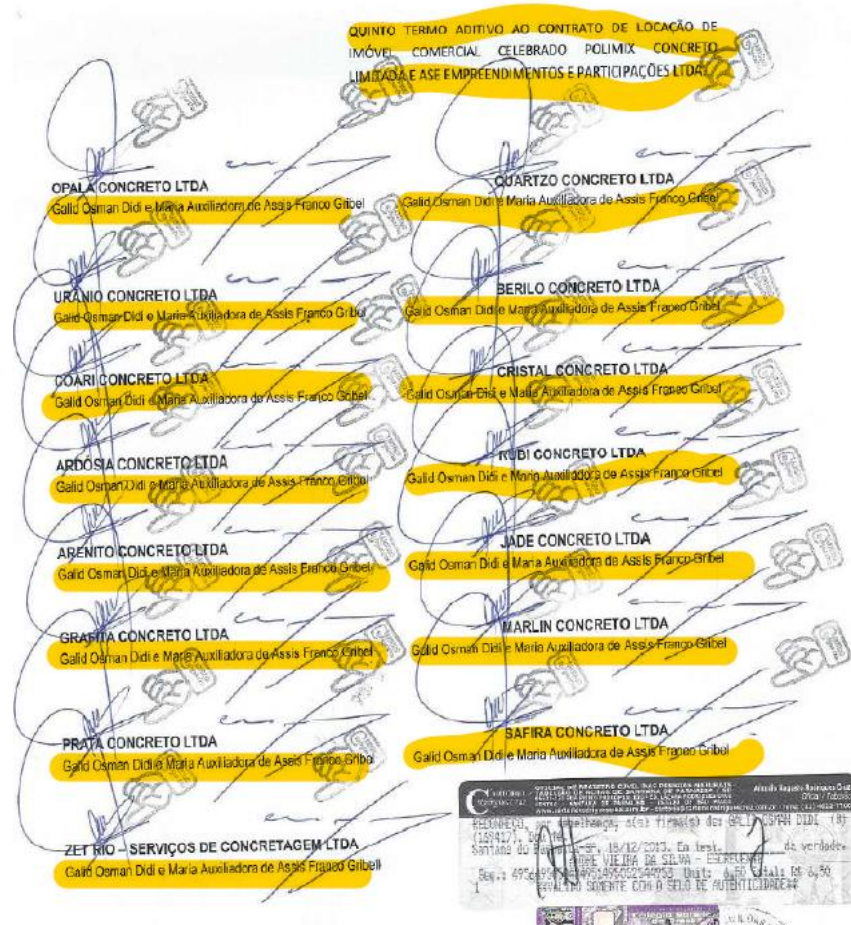 QUINTO TERMO ADITIVO AO CONTRATO DE LOCAÇÃO DE
IMÓVEL COMERCIAL CELEBRADO POLIMIX CONCRETO
LIMITADA E ASE EMPREENDIMENTOS E PARTICIPAÇÕES LTDA
OPALA CONCRETO LTDA
Galid Osman Didi e Maria Auxiliadora de Assis Franco Gribel
QUARTZO CONCRETO LTDA
Galid Osman Didi e Maria Auxiliadora de Assis Franco Gribel
URÂNIO CONCRETO LTDA
Galid Osman Didi e Maria Auxiliadora de Assis Franco Gribel
BERILO CONCRETO LTDA
Galid Osman Didi e Maria Auxiliadora de Assis Franco Gribel
COARI CONCRETO LTDA
Galid Osman Didi e Maria Auxiliadora de Assis Franco Gribel
CRISTAL CONCRETO LTDA
Galid Osman Didi e Maria Auxiliadora de Assis Franco Gribel
ARDÓSIA CONCRETO LTDA
Galid Osman Didi e Maria Auxiliadora de Assis Franco Gribel
RUBI CONCRETO LTDA
Galid Osman Didi e Maria Auxiliadora de Assis Franco Gribel
ARENITO CONCRETO LTDA
Galid Osman Didi e Maria Auxiliadora de Assis Franco Gribel
JADE CONCRETO LTDA
Galid Osman Didi e Maria Auxiliadora de Assis Franco Gribel
GRAFITA CONCRETO LTDA
Galid Osman Didi e Maria Auxiliadora de Assis Franco Gribel
MARLIN CONCRETO LTDA
Galid Osman Didi e Maria Auxiliadora de Assis Franco Gribel
PRATA CONCRETO LTDA
Galid Osman Didi e Maria Auxiliadora de Assis Franco Gribel
SAFIRA CONCRETO LTDA
Galid Osman Didi e Maria Auxiliadora de Assis Franco Gribel
ZET RIO – SERVIÇOS DE CONCRETAGEM LTDA
Galid Osman Didi e Maria Auxiliadora de Assis Franco Gribell
RECONHEÇO, por semelhança, a(s) firma(s) de: GALID OSMAN DIDI
Santana do 18/12/2013. Em test. da verdade.
ANDRE VIEIRA DA SILVA - ESCREVENTE
VALIDO SOMENTE COM O SELO DE AUTENTICIDADE